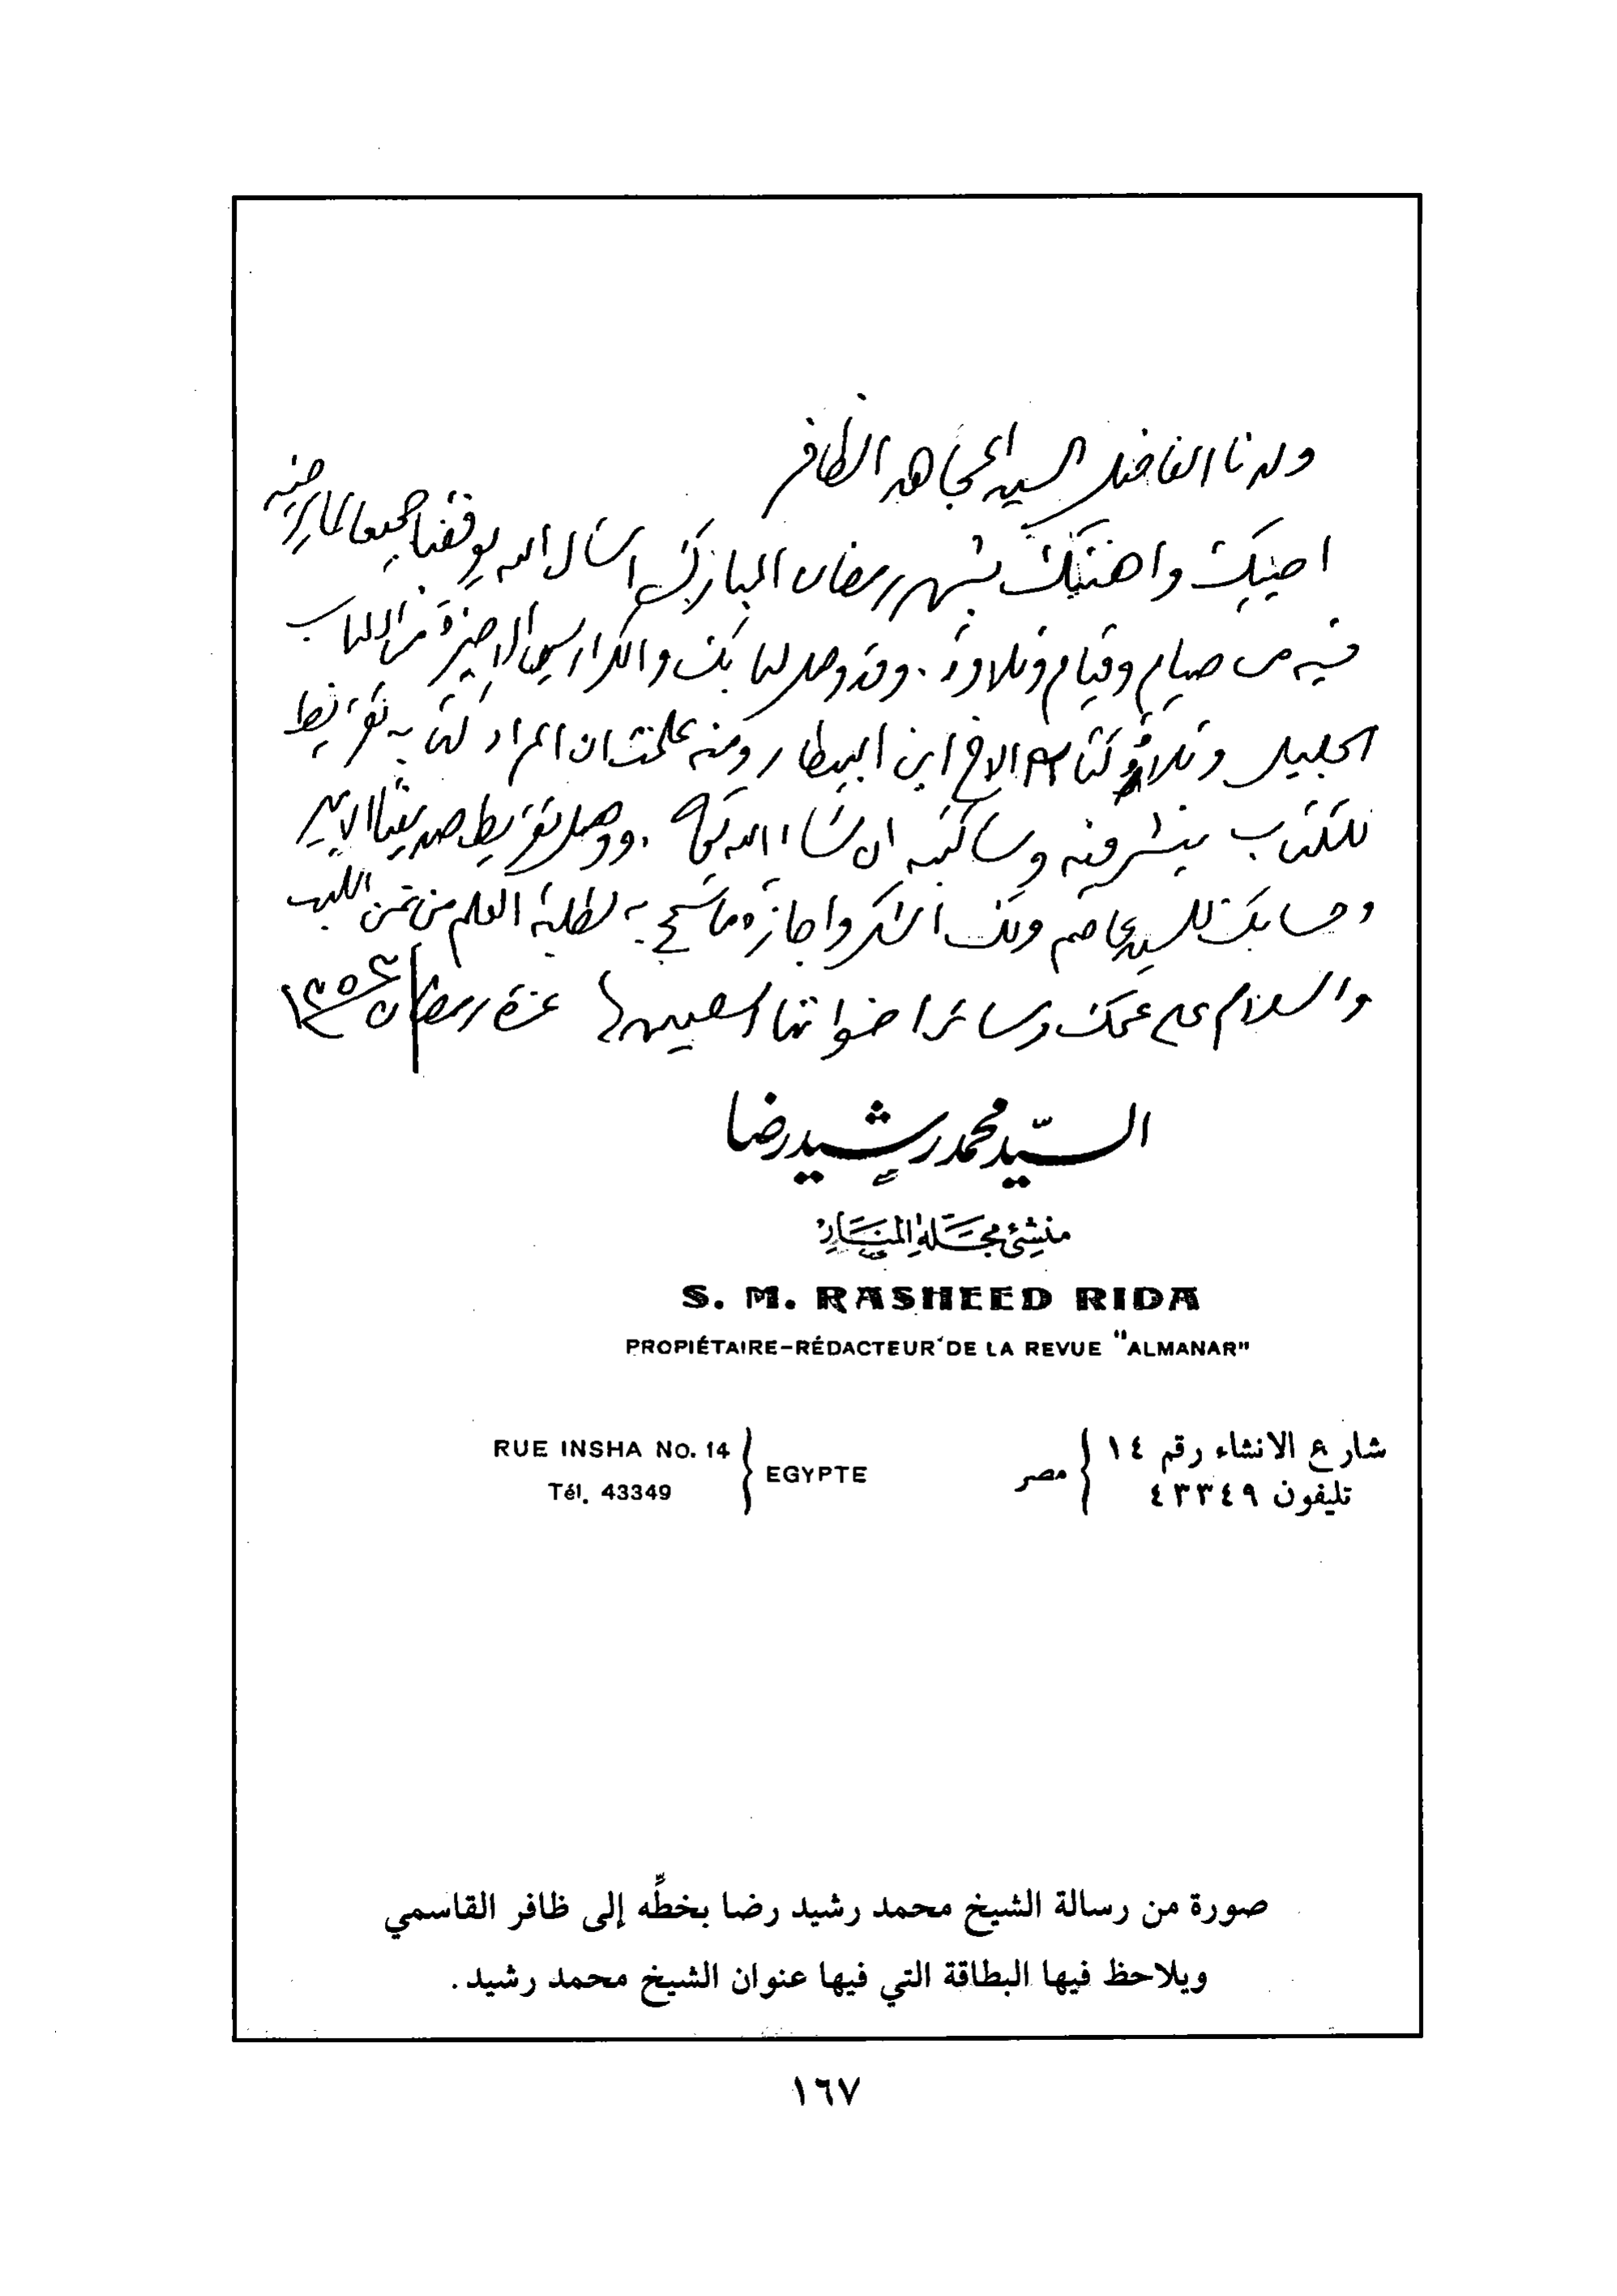 ولدنا الفاضل السيد المجاهد الظافر
احييك واهنئك بشهر رمضان المبارك اسأل الله يوفقنا جميعا لما يرضيه
فيه من صيام وقيام وتلاوة . وقد وصل كتابك والكراريس الاخيرة من الكتاب
الجليل وتلاه كتاب الاخ ابن البيطار ومنه علمت ان المراد كتابة تقريظ
للكتاب وساكتبه ان شاء الله تعالى . ووصل تقريظ صديقنا الامير
وحسابك للسيد عاصم ولك الشكر واجازة ما سمح به لطلبة العلم من ثمن الكتب
والسلام على عمك وسائر اخواننا غرة رمضان ١٣٥٣
السيّد محمد رشيد رضا
منشئ مجلة المنار
S. M. RASHEED RIDA
PROPIÉTAIRE-RÉDACTEUR DE LA REVUE "ALMANAR"
شارع الانشاء رقم ١٤
تليفون ٤٣٣٤٩
مصر
RUE INSHA No. 14
Tél. 43349
EGYPTE
صورة من رسالة الشيخ محمد رشيد رضا بخطِّه إلى ظافر القاسمي
ويلاحظ فيها البطاقة التي فيها عنوان الشيخ محمد رشيد .
١٦٧